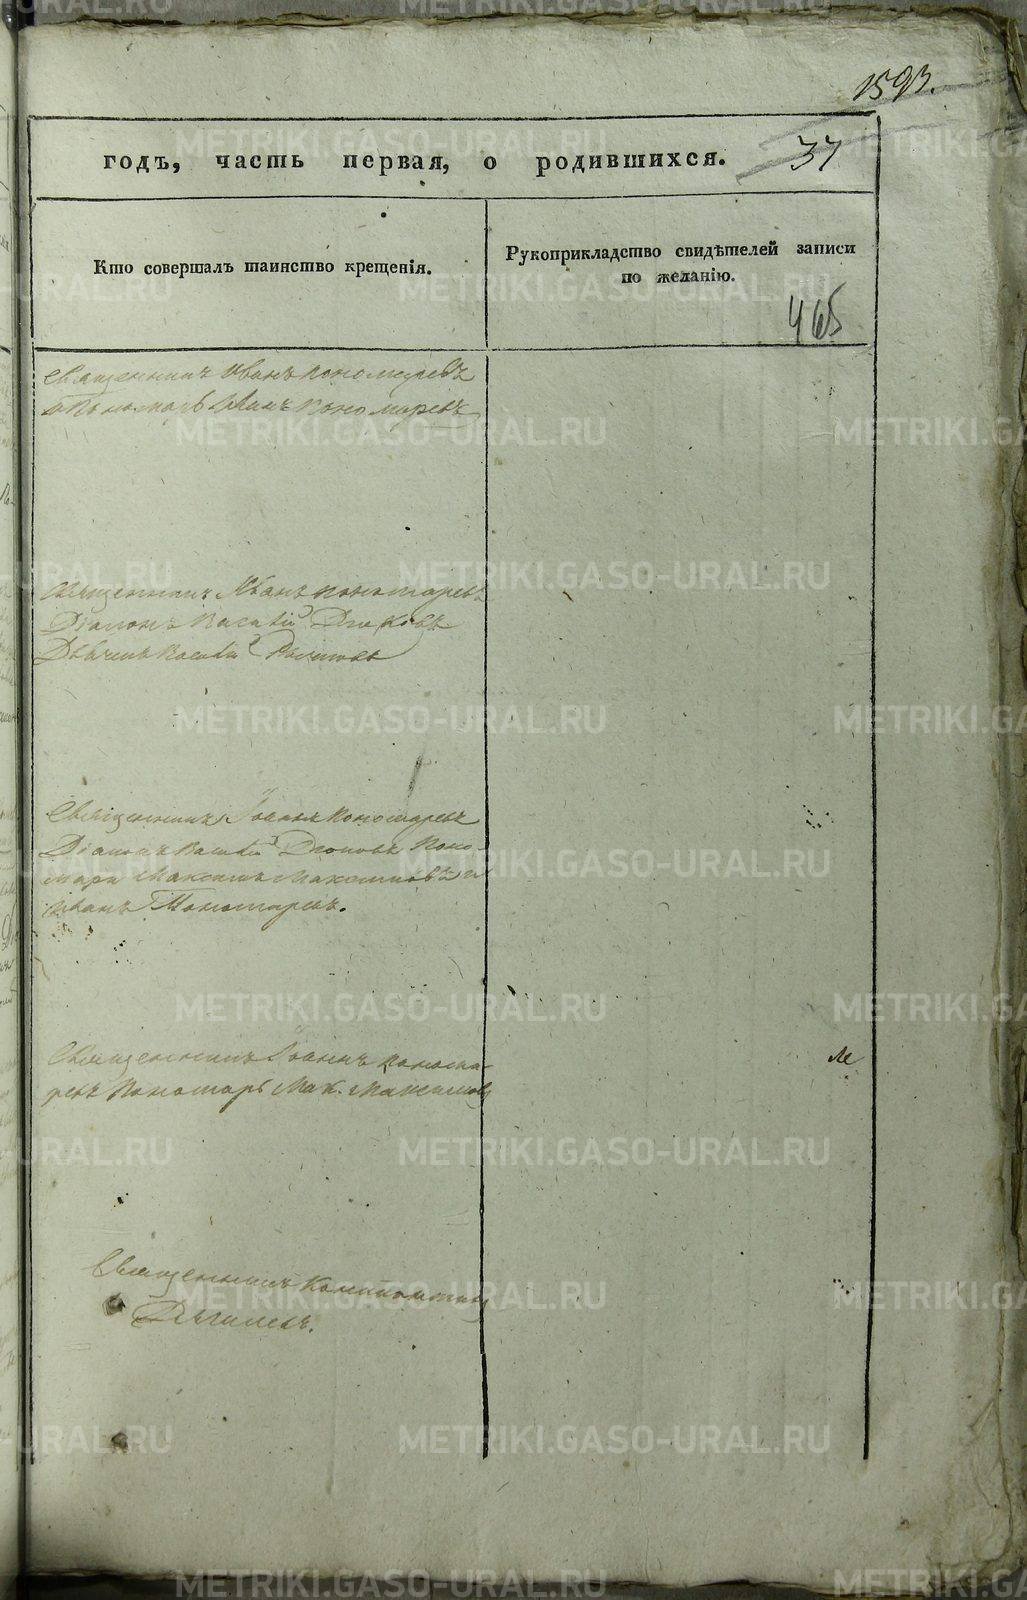 1593.
годъ, часть первая, о родившихся.
37
Кто совершалъ таинство крещенія.
Рукоприкладство свидѣтелей записи
по желанію.
465
Священникъ Иванъ Пономаревъ
Пономарь Иванъ Пономаревъ
Священникъ Иванъ Пономаревъ
Діаконъ Василій
Дьячекъ Василій
Священникъ Іоаннъ Пономаревъ
Діаконъ Василій Поно-
мари Максимъ Максимовъ и
Иванъ Пономаревъ.
Священникъ Іоаннъ Понома-
ревъ Пономарь Мак. Максимовъ
Священникъ Константинъ
METRIKI.GASO-URAL.RU